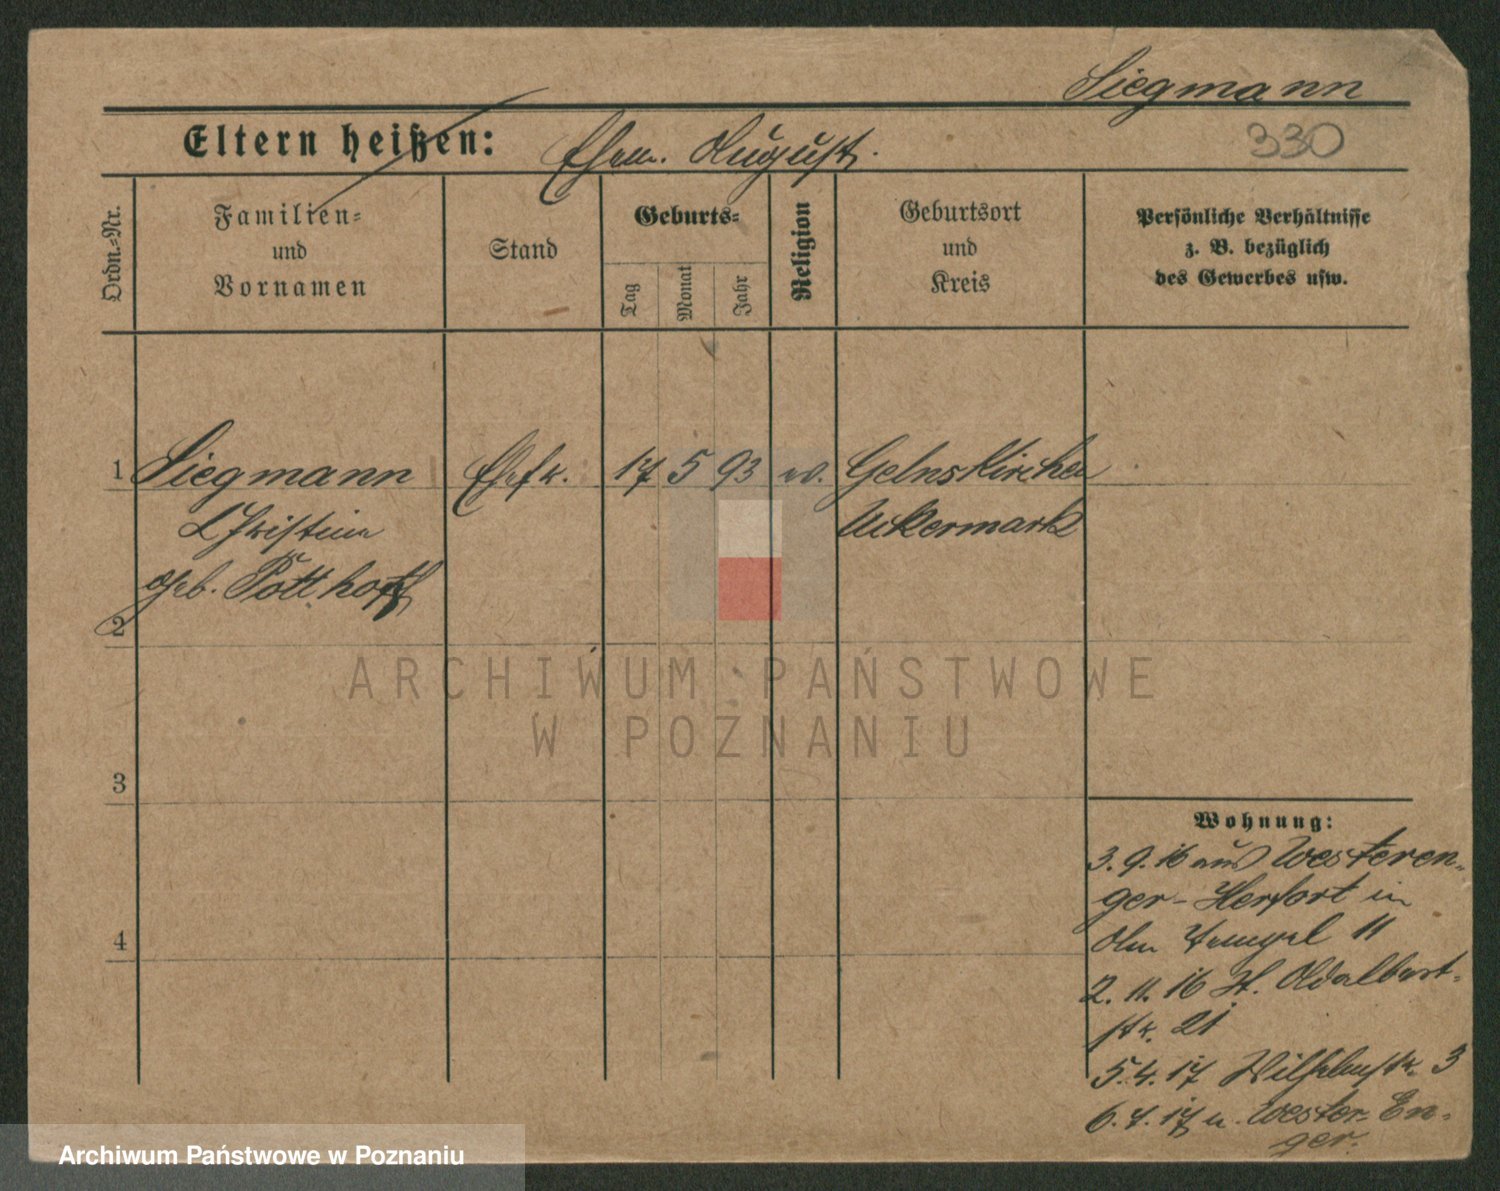 Siegmann
330
Eltern heißen: Ehem. August.
Ordn.-Nr.
Familien-
und
Vornamen
Stand
Geburts-
Tag
Monat
Jahr
Religion
Geburtsort
und
Kreis
Persönliche Verhältnisse
z. B. bezüglich
des Gewerbes usw.
1 Siegmann Ehefr. 17 5 93 ev. Gelnskirchen
Christine Uckermark
geb. Potthoff
2
3
4
Wohnung:
3.9.16 aus Westeren-
ger-Herfort in
Am 11
2.11.16 St. Adalbert-
str. 21
5.4.17 Wilhelmstr. 3
6.7.17 n. Wester-En-
ger.
ARCHIWUM PAŃSTWOWE
W POZNANIU
Archiwum Państwowe w Poznaniu